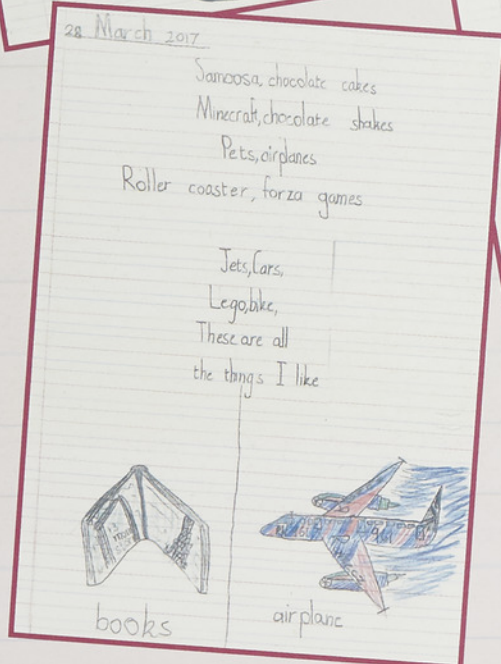 28 March 2017
Samoosa, chocolate cakes
Minecraft, chocolate shakes
Pets, airplanes
Roller coaster, forza games
Jets, Cars,
Lego, bike,
These are all
the things I like
books
airplane